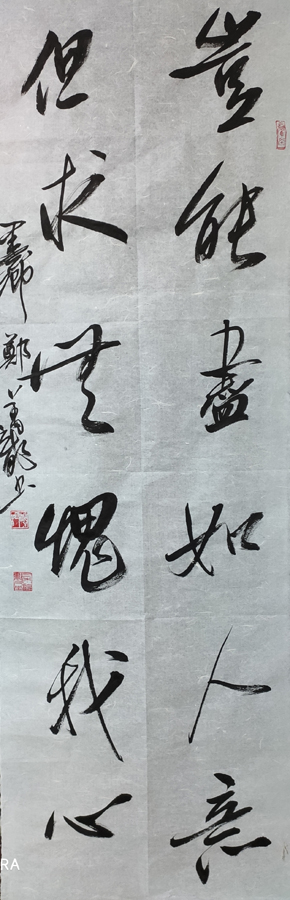 豈能盡如人意
但求無愧我心
鄭萬龍书
RA